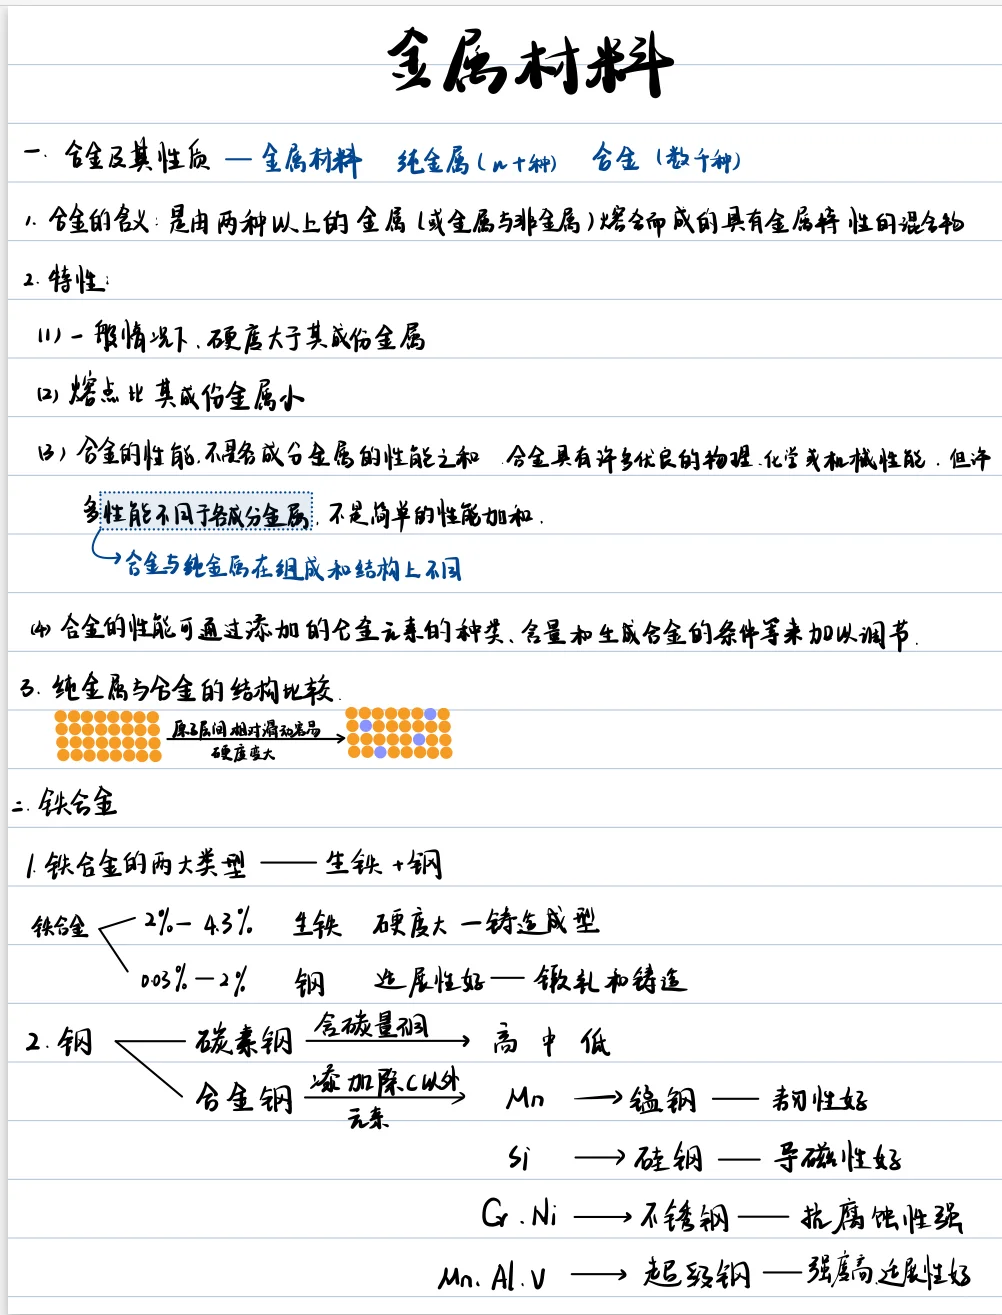 金属材料
一. 合金及其性质 — 金属材料 纯金属(n十种) 合金 (数千种)
1. 合金的含义: 是由两种以上的金属(或金属与非金属)熔合而成的具有金属特性的混合物
2. 特性:
(1) 一般情况下、硬度大于其成份金属
(2) 熔点比其成份金属小
(3) 合金的性能,不是各成分金属的性能之和 .合金具有许多优良的物理、化学或机械性能.但许
多性能不同于各成分金属,不是简单的性能加和.
合金与纯金属在组成和结构上不同
(4) 合金的性能可通过添加的合金元素的种类、含量和生成合金的条件等来加以调节.
3. 纯金属与合金的结构比较.
原子层间相对滑动容易
硬度变大
二. 铁合金
1. 铁合金的两大类型 —— 生铁 + 钢
铁合金 2%— 4.3% 生铁 硬度大 — 铸造成型
0.03%—2% 钢 延展性好 — 锻轧和铸造
2. 钢 碳素钢 含碳量 高 中 低
合金钢 添加除C以外元素 Mn → 锰钢 — 韧性好
Si → 硅钢 — 导磁性好
Cr.Ni → 不锈钢 — 抗腐蚀性强
Mn.Al.V → 超级钢 — 强度高,延展性好